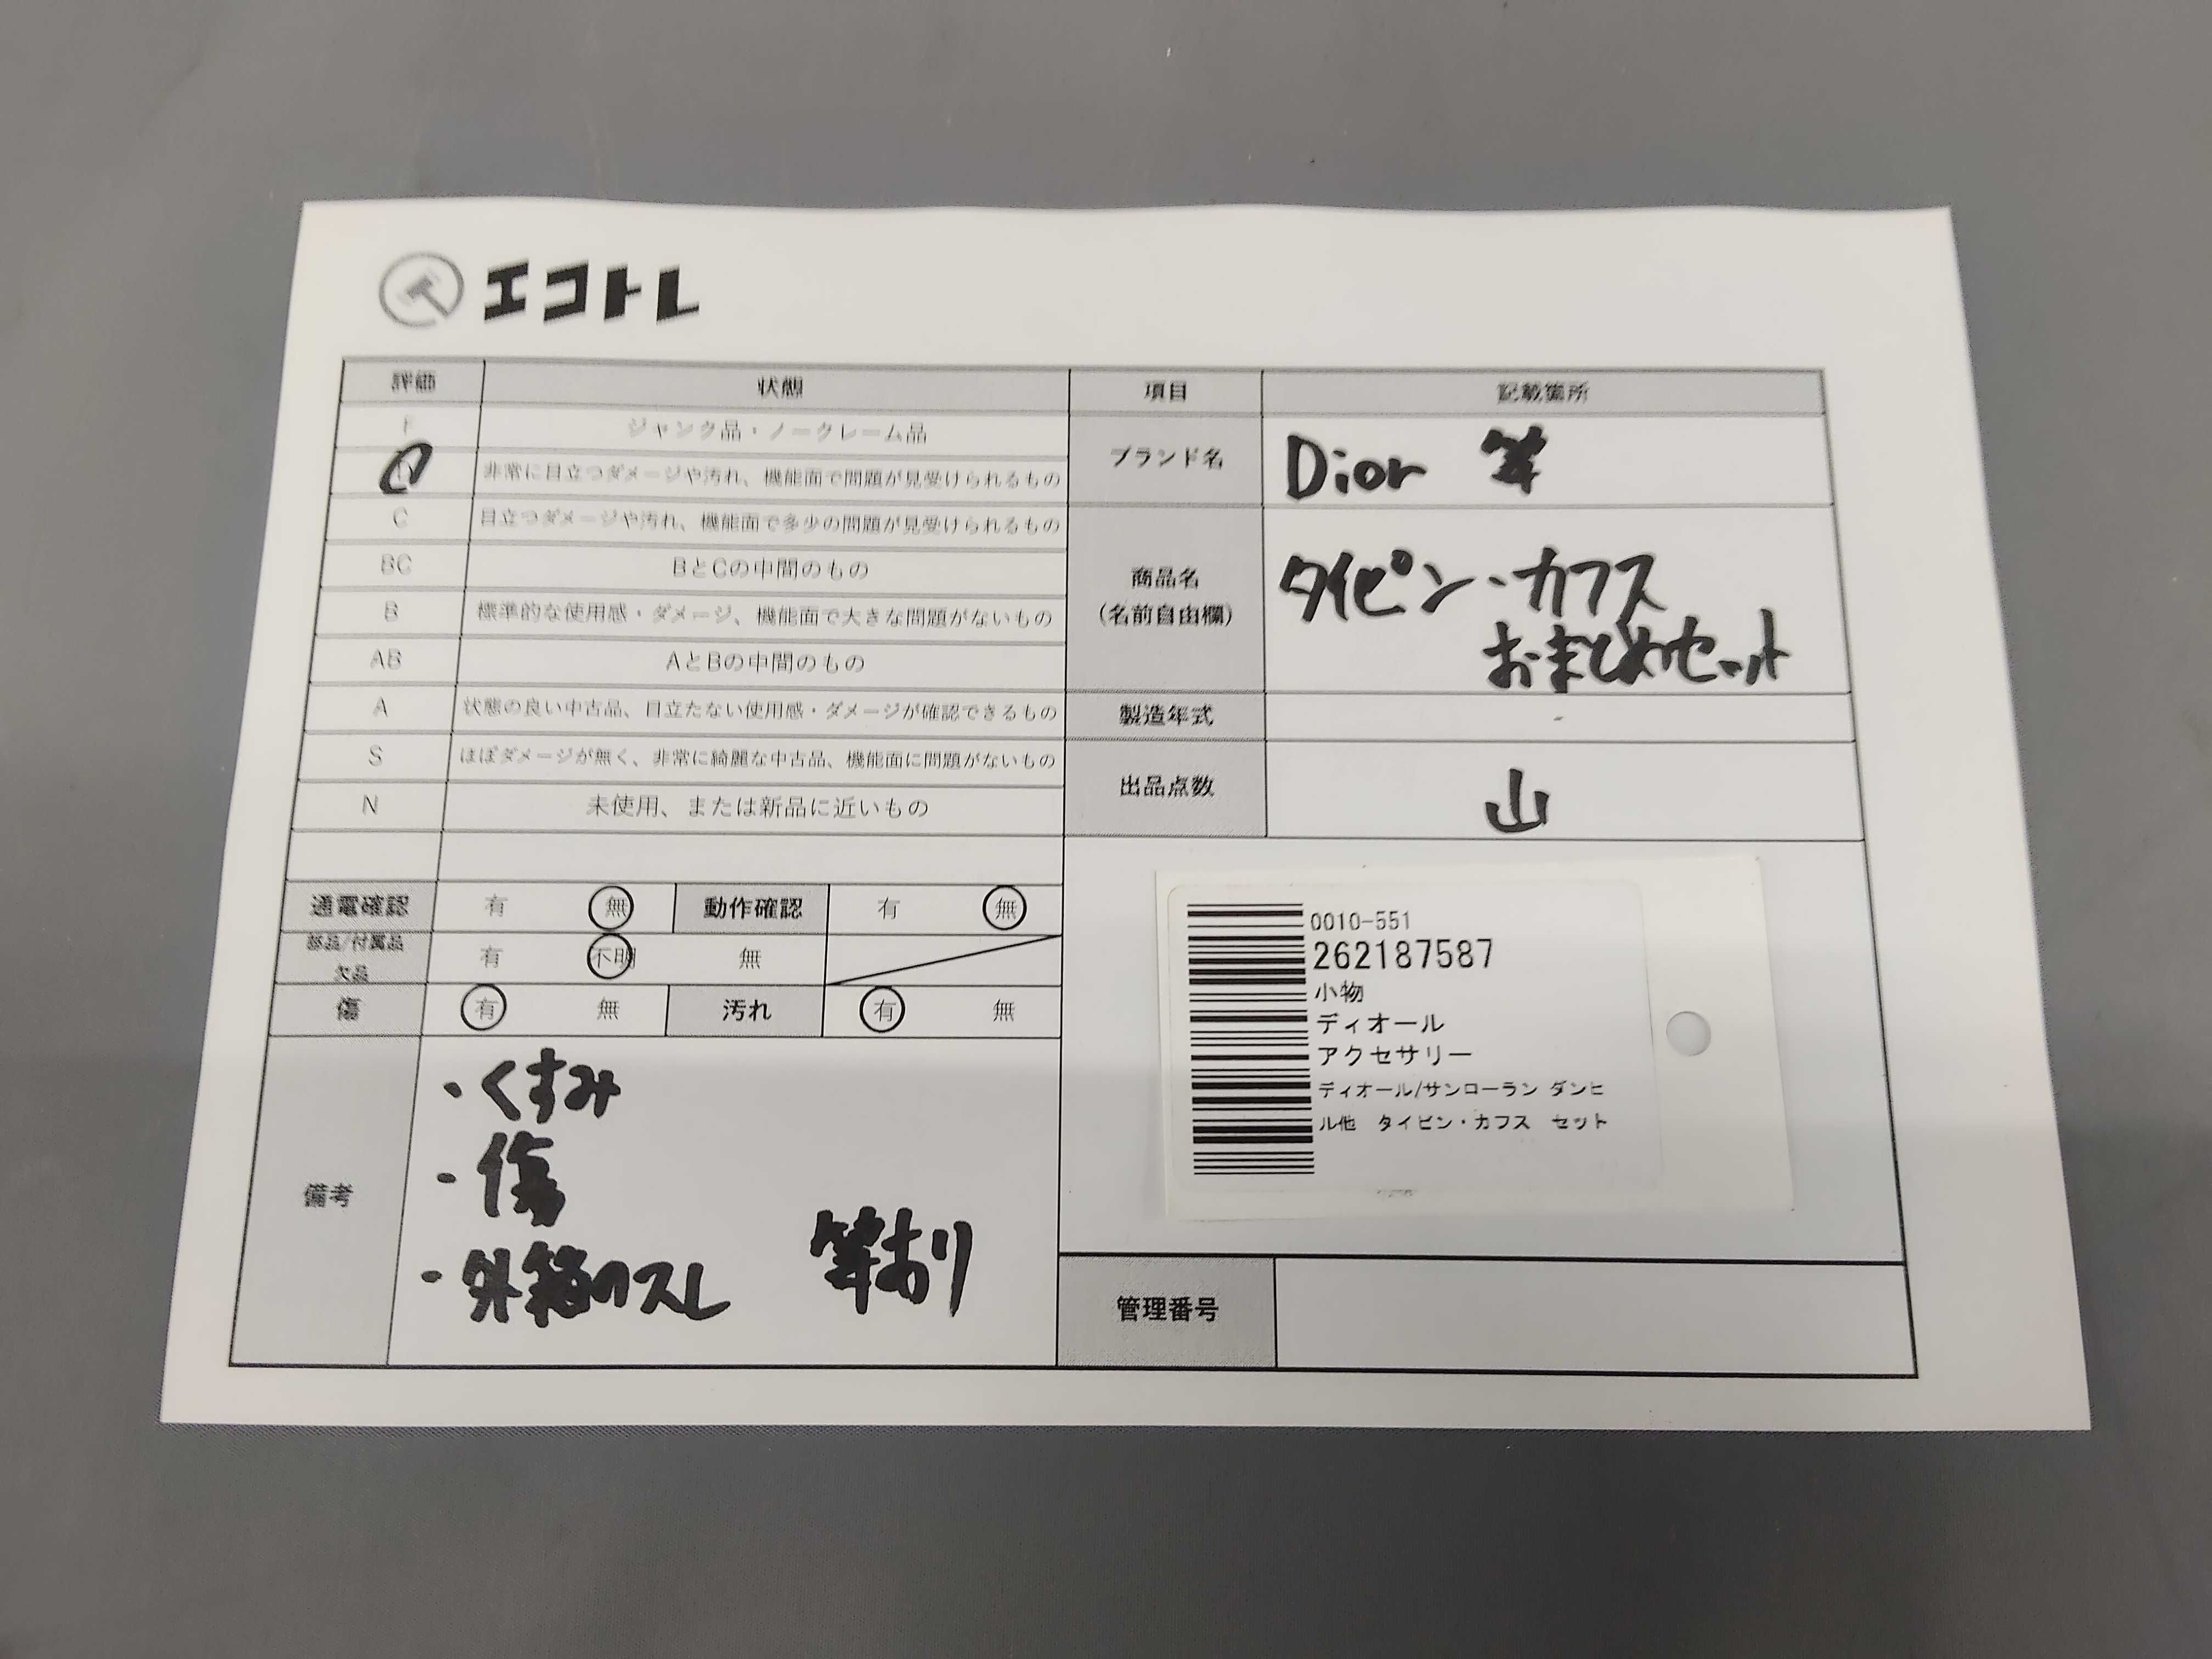 エコトレ
評価 状態 項目 記載箇所
F ジャンク品・ノークレーム品
非常に目立つダメージや汚れ、機能面で問題が見受けられるもの
C 目立つダメージや汚れ、機能面で多少の問題が見受けられるもの
BC BとCの中間のもの
B 標準的な使用感・ダメージ、機能面で大きな問題がないもの
AB AとBの中間のもの
A 状態の良い中古品、目立たない使用感・ダメージが確認できるもの
S ほぼダメージが無く、非常に綺麗な中古品、機能面に問題がないもの
N 未使用、または新品に近いもの
ブランド名 Dior 等
商品名
(名前自由欄)
タイピン・カフス
おまとめセット
製造年式 -
出品点数 山
通電確認 有 無 動作確認 有 無
部品/付属品
欠品
有 不明 無
傷 有 無 汚れ 有 無
備考
・くすみ
・傷
・外箱のスレ 等あり
0010-551
262187587
小物
ディオール
アクセサリー
ディオール/サンローラン ダンヒ
ル他 タイピン・カフス セット
管理番号